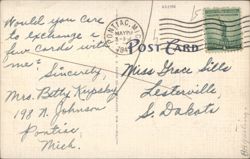 Would you care
to exchange a
few cards with
me?
Sincerely,
Mrs. Betty Kupsky
198 N. Johnson
Pontiac,
Mich.
PONTIAC, MICH.
MAY
POST CARD
Miss Grace Sills
Lesterville,
S. Dakota